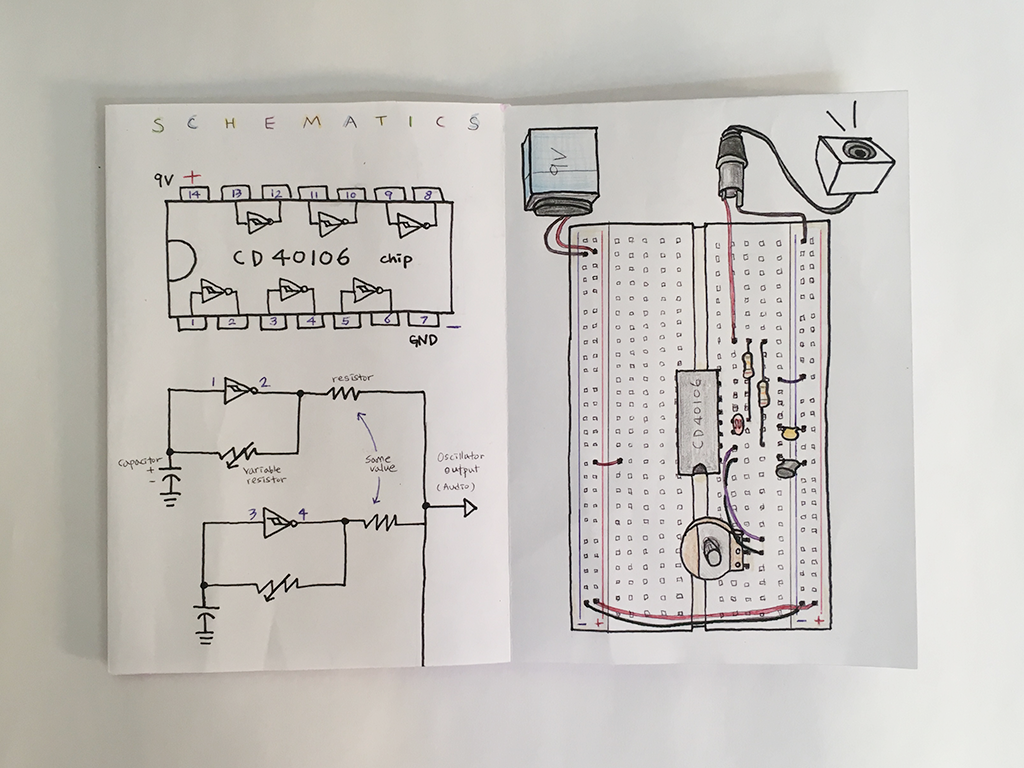 SCHEMATICS
9V +
14 13 12 11 10 9 8
CD40106 chip
1 2 3 4 5 6 7 -
GND
1 2
resistor
capacitor
+
-
variable
resistor
same
value
Oscillator
output
(Audio)
3 4
9V
CD40106
- +
- +